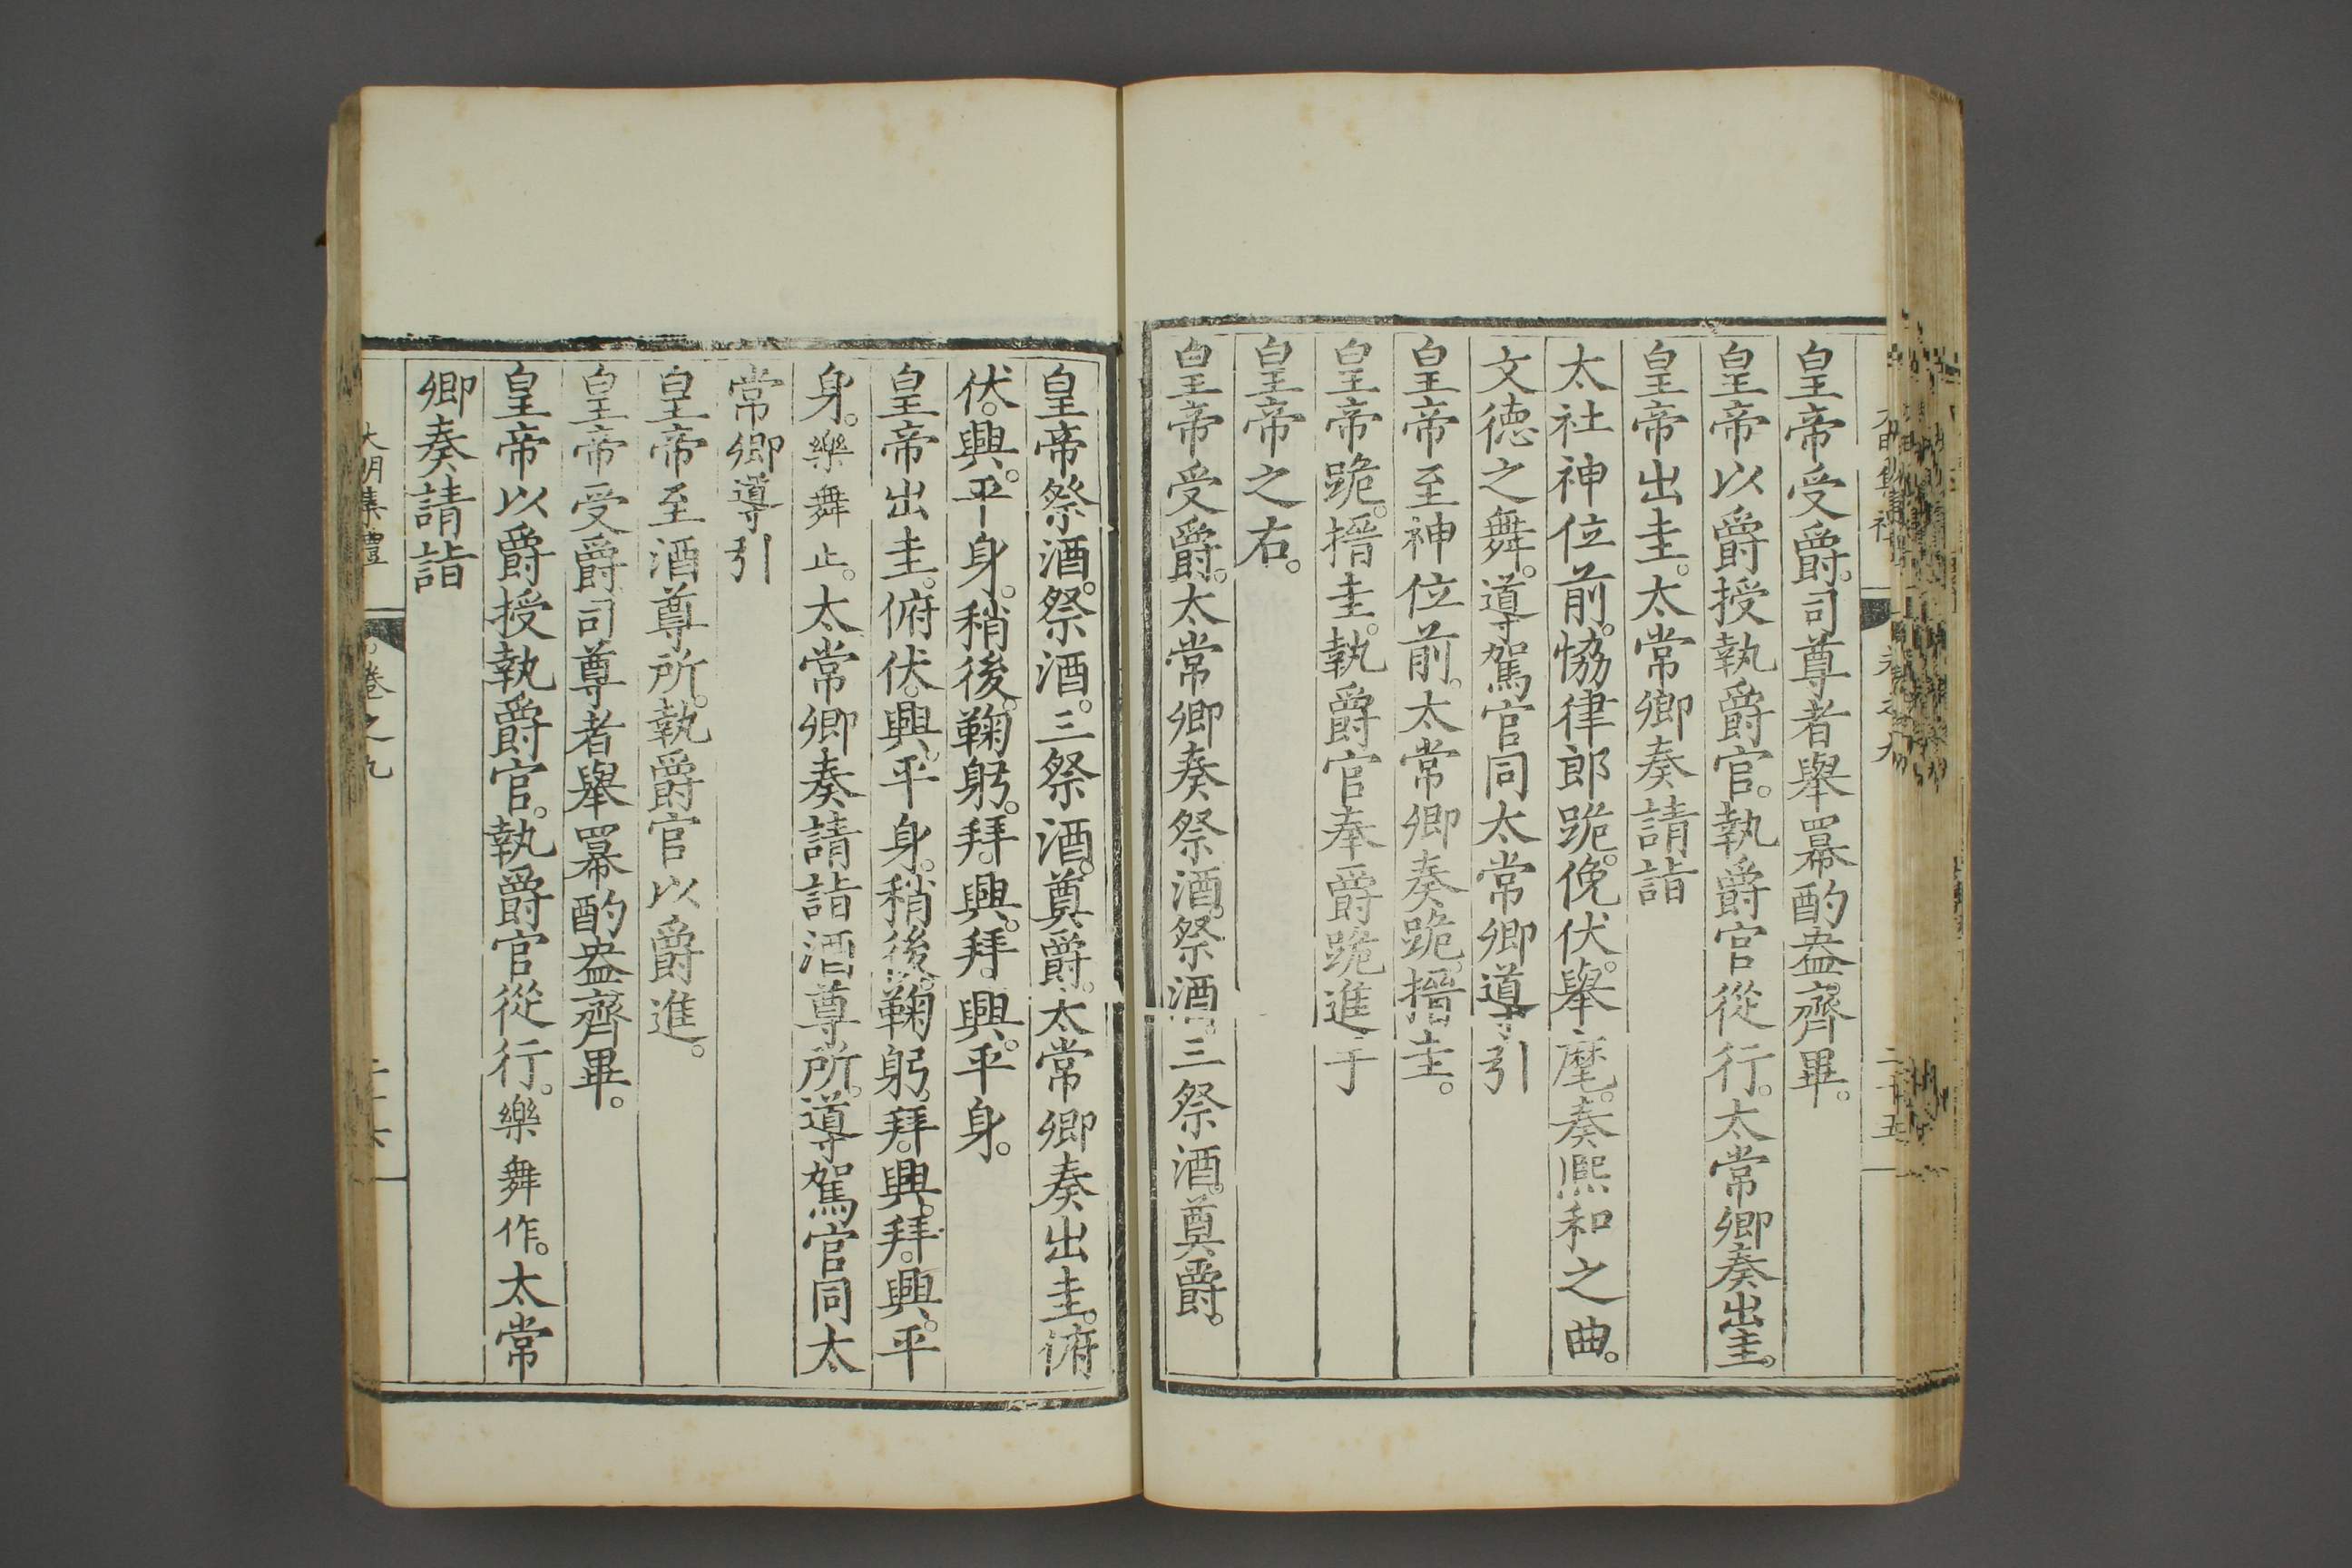 皇帝受爵。司尊者舉羃酌盎齊畢。
皇帝以爵授執爵官。執爵官從行。太常卿奏出圭。
皇帝出圭。太常卿奏請詣
太社神位前。恊律郎跪。俛伏。舉麾。奏熙和之曲。
文德之舞。導駕官同太常卿導引
皇帝至神位前。太常卿奏跪。搢圭。
皇帝跪。搢圭。執爵官奉爵跪進于
皇帝之右。
皇帝受爵。太常卿奏祭酒。祭酒。三祭酒。奠爵。
皇帝祭酒。祭酒。三祭酒。奠爵。太常卿奏出圭。俯
伏。興。平身。稍後。鞠躬。拜。興。拜。興。平身。
皇帝出圭。俯伏。興。平身。稍後。鞠躬。拜。興。拜。興。平
身。樂舞止。太常卿奏請詣酒尊所。導駕官同太
常卿導引
皇帝至酒尊所。執爵官以爵進。
皇帝受爵。司尊者舉羃酌盎齊畢。
皇帝以爵授執爵官。執爵官從行。樂舞作。太常
卿奏請詣
大明集禮
卷之九